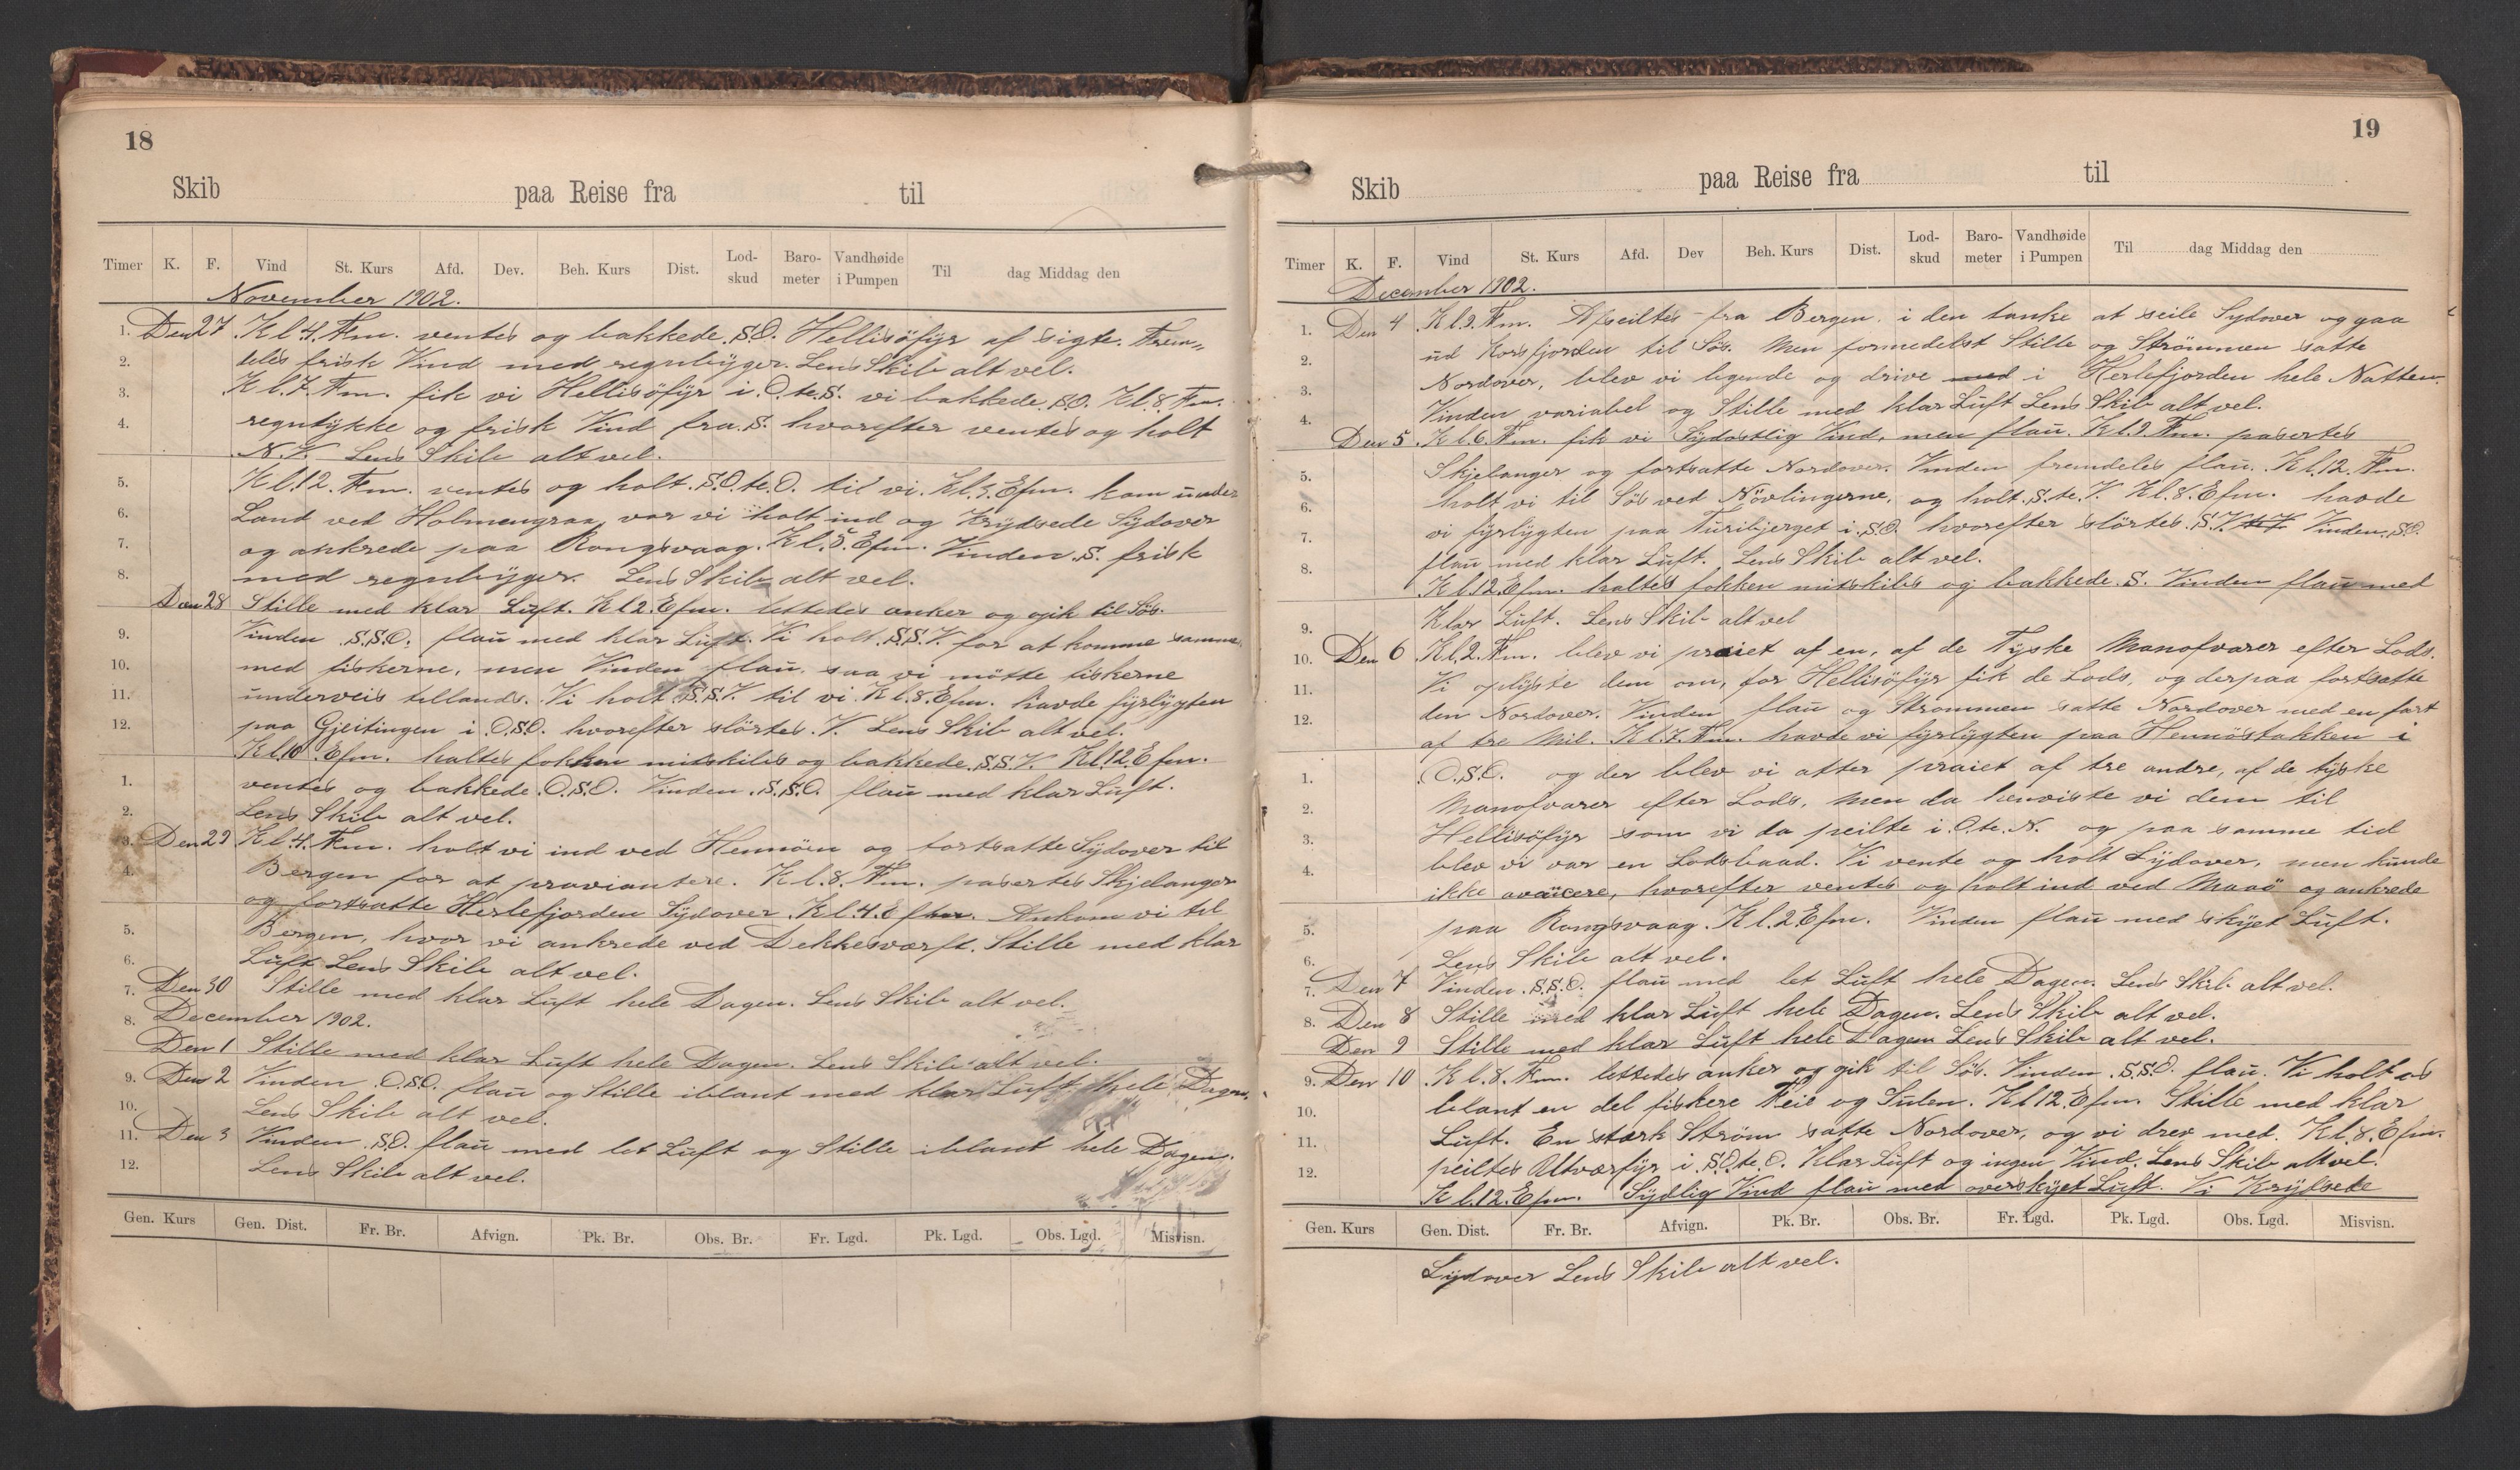 18
Skib paa Reise fra til
Timer K. F. Vind St. Kurs Afd. Dev. Beh. Kurs Dist. Lod-skud Baro-meter Vandhøide i Pumpen Til dag Middag den
November 1902.
1. Den 27 Kl. 4. Fm. ventes og bakkede. S.O. Hellisöfyr af sigte. Frem„
2. deles frisk Vind med regnbyger. Lens Skib alt vel.
3. Kl. 7. Fm. fik vi Hellisöfyr i. O. te. S. vi bakkede. S.O. Kl. 8. Fm.
4. regntykke og frisk Vind fra. S. hvorefter ventes og holt
N.V. Lens Skib alt vel.
5. Kl. 12. Fm. ventes og holt. S.O. te. O. til vi. Kl. 3. Efm. kom under
6. Land ved Holmengraa, vor vi holt ind og Krydsede Sydover
7. og ankrede paa Rongsvaag. Kl. 5. Efm. Vinden. S. frisk
8. med regnbyger. Lens Skib alt vel.
Den 28 Stille med klar Luft. Kl 2. Efm. lettedes anker og gik til Sös.
9. Vinden. S.S.O. flau med klar Luft. Vi holt. S.S.V. for at komme samme
10. med fiskerne, men Vinden flau, saa vi mötte fiskerne
11. underveis tillands. Vi holt S.S.V. til vi. Kl. 8. Efm. havde fyrlygten
12. paa Gjeitingen i. O.S.O. hvorefter slörtes. V. Lens Skib alt vel.
Kl. 10. Efm. haltes fokken mitskibs og bakkede. S.S.V. Kl. 12. Efm.
1. ventes og bakkede. O.S.O. Vinden. S.S.O. flau med klar Luft.
2. Lens Skib alt vel.
3. Den 29 Kl. 4. Fm. holt vi ind ved Hennöen og fortsatte Sydover til
4. Bergen for at proviantere. Kl. 8. Fm. pasertes Skjelanger
og fortsatte Herlefjorden Sydover. Kl. 4. Efm. Ankom vi til
5. Bergen, hvor vi ankrede ved Dekkesværft. Stille med klar
6. Luft Lens Skib alt vel.
7. Den 30 Stille med klar Luft hele Dagen. Lens Skib alt vel.
8. December 1902.
Den 1 Stille med klar Luft hele Dagen. Lens Skib alt vel.
9. Den 2 Vinden. O.S.O. flau og Stille iblant med klar Luft hele Dagen.
10. Lens Skib alt vel.
11. Den 3 Vinden. S.O. flau med let Luft og Stille iblant hele Dagen.
12. Lens Skib alt vel.
Gen. Kurs Gen. Dist. Fr. Br. Afvign. Pk. Br. Obs. Br. Fr. Lgd. Pk. Lgd. Obs. Lgd. Misvisn.
19
Skib paa Reise fra til
Timer K. F. Vind St. Kurs Afd. Dev Beh. Kurs Dist. Lod-skud Baro-meter Vandhøide i Pumpen Til dag Middag den
December 1902.
1. Den 4 Kl. 9. Fm. Afseiltes fra Bergen. i den tanke at seile Sydover og gaa
2. ud Korsfjorden til Sös. Men formedelst Stille og Strömmen satte
3. Nordover, blev vi ligende og drive med i Herlefjorden hele Natten.
4. Vinden variabel og Stille med klar Luft Lens Skib alt vel.
Den 5 Kl. 6. Fm. fik vi Sydostlig Vind, men flau. Kl. 9. Fm. pasertes
5. Skjelanger og fortsatte Nordover. Vinden fremdeles flau. Kl. 12. Fm.
6. holt vi til Sös ved Növlingerne, og holt. S. te. V. Kl. 8. Efm. havde
7. vi fyrlygten paa Turibjerget i. S.O. hvorefter slörtes. S.V. te V. Vinden. S.O.
8. flau med klar Luft. Lens Skib alt vel.
Kl. 12. Efm. haltes fokken mitskibs og bakkede. S. Vinden flau med
9. Klar Luft. Lens Skib alt vel
10. Den 6 Kl. 2. Fm. blev vi praiet af en, af de Tyske Manofvarer efter Lods.
11. Vi oplyste dem om, for Hellisöfyr fik de Lods, og derpaa fortsatte
12. den Nordover. Vinden flau og Strommen satte Nordover med en fart
af tre Mil. Kl. 7. Fm. havde vi fyrlygten paa Hennöstakken i
1. O.S.O. og der blev vi atter praiet af tre andre, af de tyske
2. Manofvarer efter Lods, men da henviste vi dem til
3. Hellisöfyr som vi da peilte i. O. te. N. og paa samme tid
4. blev vi var en Lodsbaad. Vi vente og holt Sydover, men kunde
ikke avancere, hvorefter ventes og holt ind ved Maaö og ankrede
5. paa Rongsvaag. Kl. 2 Efm. Vinden flau med skyet Luft.
6. Lens Skib alt vel.
7. Den 7 Vinden. S.S.O. flau med let Luft hele Dagen. Lens Skib alt vel.
8. Den 8 Stille med klar Luft hele Dagen. Lens Skib alt vel.
Den 9 Stille med klar Luft hele Dagen Lens Skib alt vel.
9. Den 10 Kl. 8. Fm. lettedes anker og gik til Sös. Vinden. S.S.O. flau. Vi holt os
10. blant en del fiskere Feie og Sulen. Kl 12. Efm. Stille med klar
11. Luft. En stærk Ström satte Nordover, og vi drev med. Kl. 8. Efm.
12. peiltes Utværfyr i. S.O. te. O. Klar Luft og ingen Vind. Lens Skib alt vel.
Kl. 12. Efm. Sydlig Vind flau med overskyet Luft. Vi Krydsede
Gen. Kurs Gen. Dist. Fr. Br. Afvign. Pk. Br. Obs. Br. Fr. Lgd. Pk. Lgd. Obs. Lgd. Misvisn.
Sydover Lens Skib alt vel.